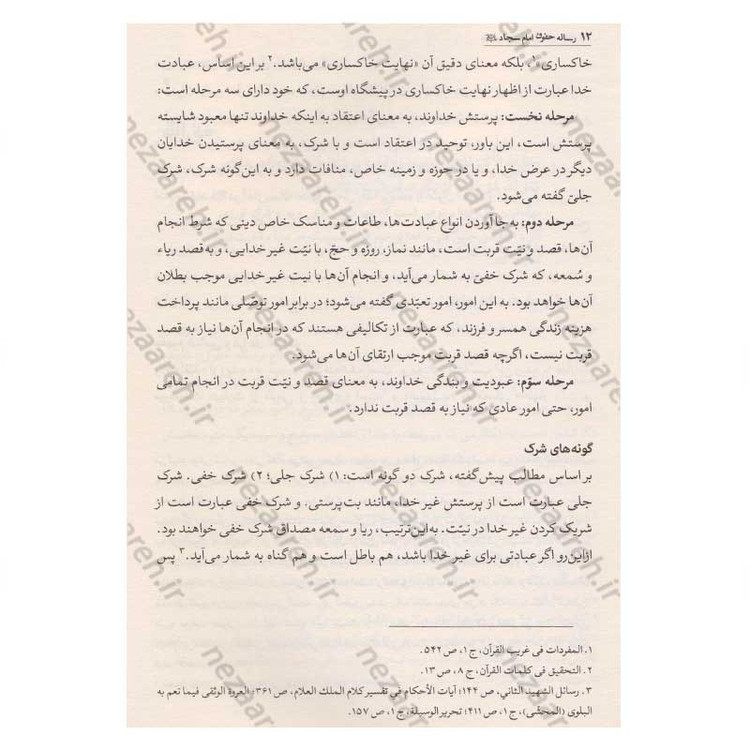 ۱۲ رساله حقوق امام سجاد
خاکساری»۱، بلکه معنای دقیق آن «نهایت خاکساری» می‌باشد.۲ بر این اساس، عبادت
خدا عبارت از اظهار نهایت خاکساری در پیشگاه اوست، که خود دارای سه مرحله است:
مرحله نخست: پرستش خداوند، به معنای اعتقاد به اینکه خداوند تنها معبود شایسته
پرستش است، این باور، توحید در اعتقاد است و با شرک، به معنای پرستیدن خدایان
دیگر در عرض خدا، و یا در حوزه و زمینه خاص، منافات دارد و به این‌گونه شرک، شرک
جلیّ گفته می‌شود.
مرحله دوم: به جا آوردن انواع عبادت‌ها، طاعات و مناسک خاص دینی که شرط انجام
آن‌ها، قصد و نیّت قربت است، مانند نماز، روزه و حجّ، با نیّت غیر خدایی، و به قصد ریاء
و سُمعه، که شرک خفیّ به شمار می‌آید، و انجام آن‌ها با نیت غیر خدایی موجب بطلان
آن‌ها خواهد بود. به این امور، امور تعبّدی گفته می‌شود؛ در برابر امور توصّلی مانند پرداخت
هزینه زندگی همسر و فرزند، که عبارت از تکالیفی هستند که در انجام آن‌ها نیاز به قصد
قربت نیست، اگرچه قصد قربت موجب ارتقای آن‌ها می‌شود.
مرحله سوّم: عبودیت و بندگی خداوند، به معنای قصد و نیّت قربت در انجام تمامی
امور، حتی امور عادی که نیاز به قصد قربت ندارد.
گونه‌های شرک
بر اساس مطالب پیش‌گفته، شرک دو گونه است: ۱) شرک جلی؛ ۲) شرک خفی. شرک
جلی عبارت است از پرستش غیر خدا، مانند بت‌پرستی. و شرک خفی عبارت است از
شریک کردن غیر خدا در نیّت. به این‌ترتیب، ریا و سمعه مصداق شرک خفی خواهند بود.
ازاین‌رو اگر عبادتی برای غیر خدا باشد، هم باطل است و هم گناه به شمار می‌آید.۳ پس
۱. المفردات فی غریب القرآن، ج ۱، ص ۵۴۲.
۲. التحقیق فی کلمات القرآن، ج ۸، ص ۱۳.
۳. رسائل الشهید الثاني، ص ۱۴۴؛ آیات الأحکام في تفسیر کلام الملک العلام، ص ۳۶۱؛ العروة الوثقی فیما تعم به
البلوی (المحشّی)، ج ۱، ص ۴۱۱؛ تحریر الوسیلة، ج ۱، ص ۱۵۷.
nezaareh.ir